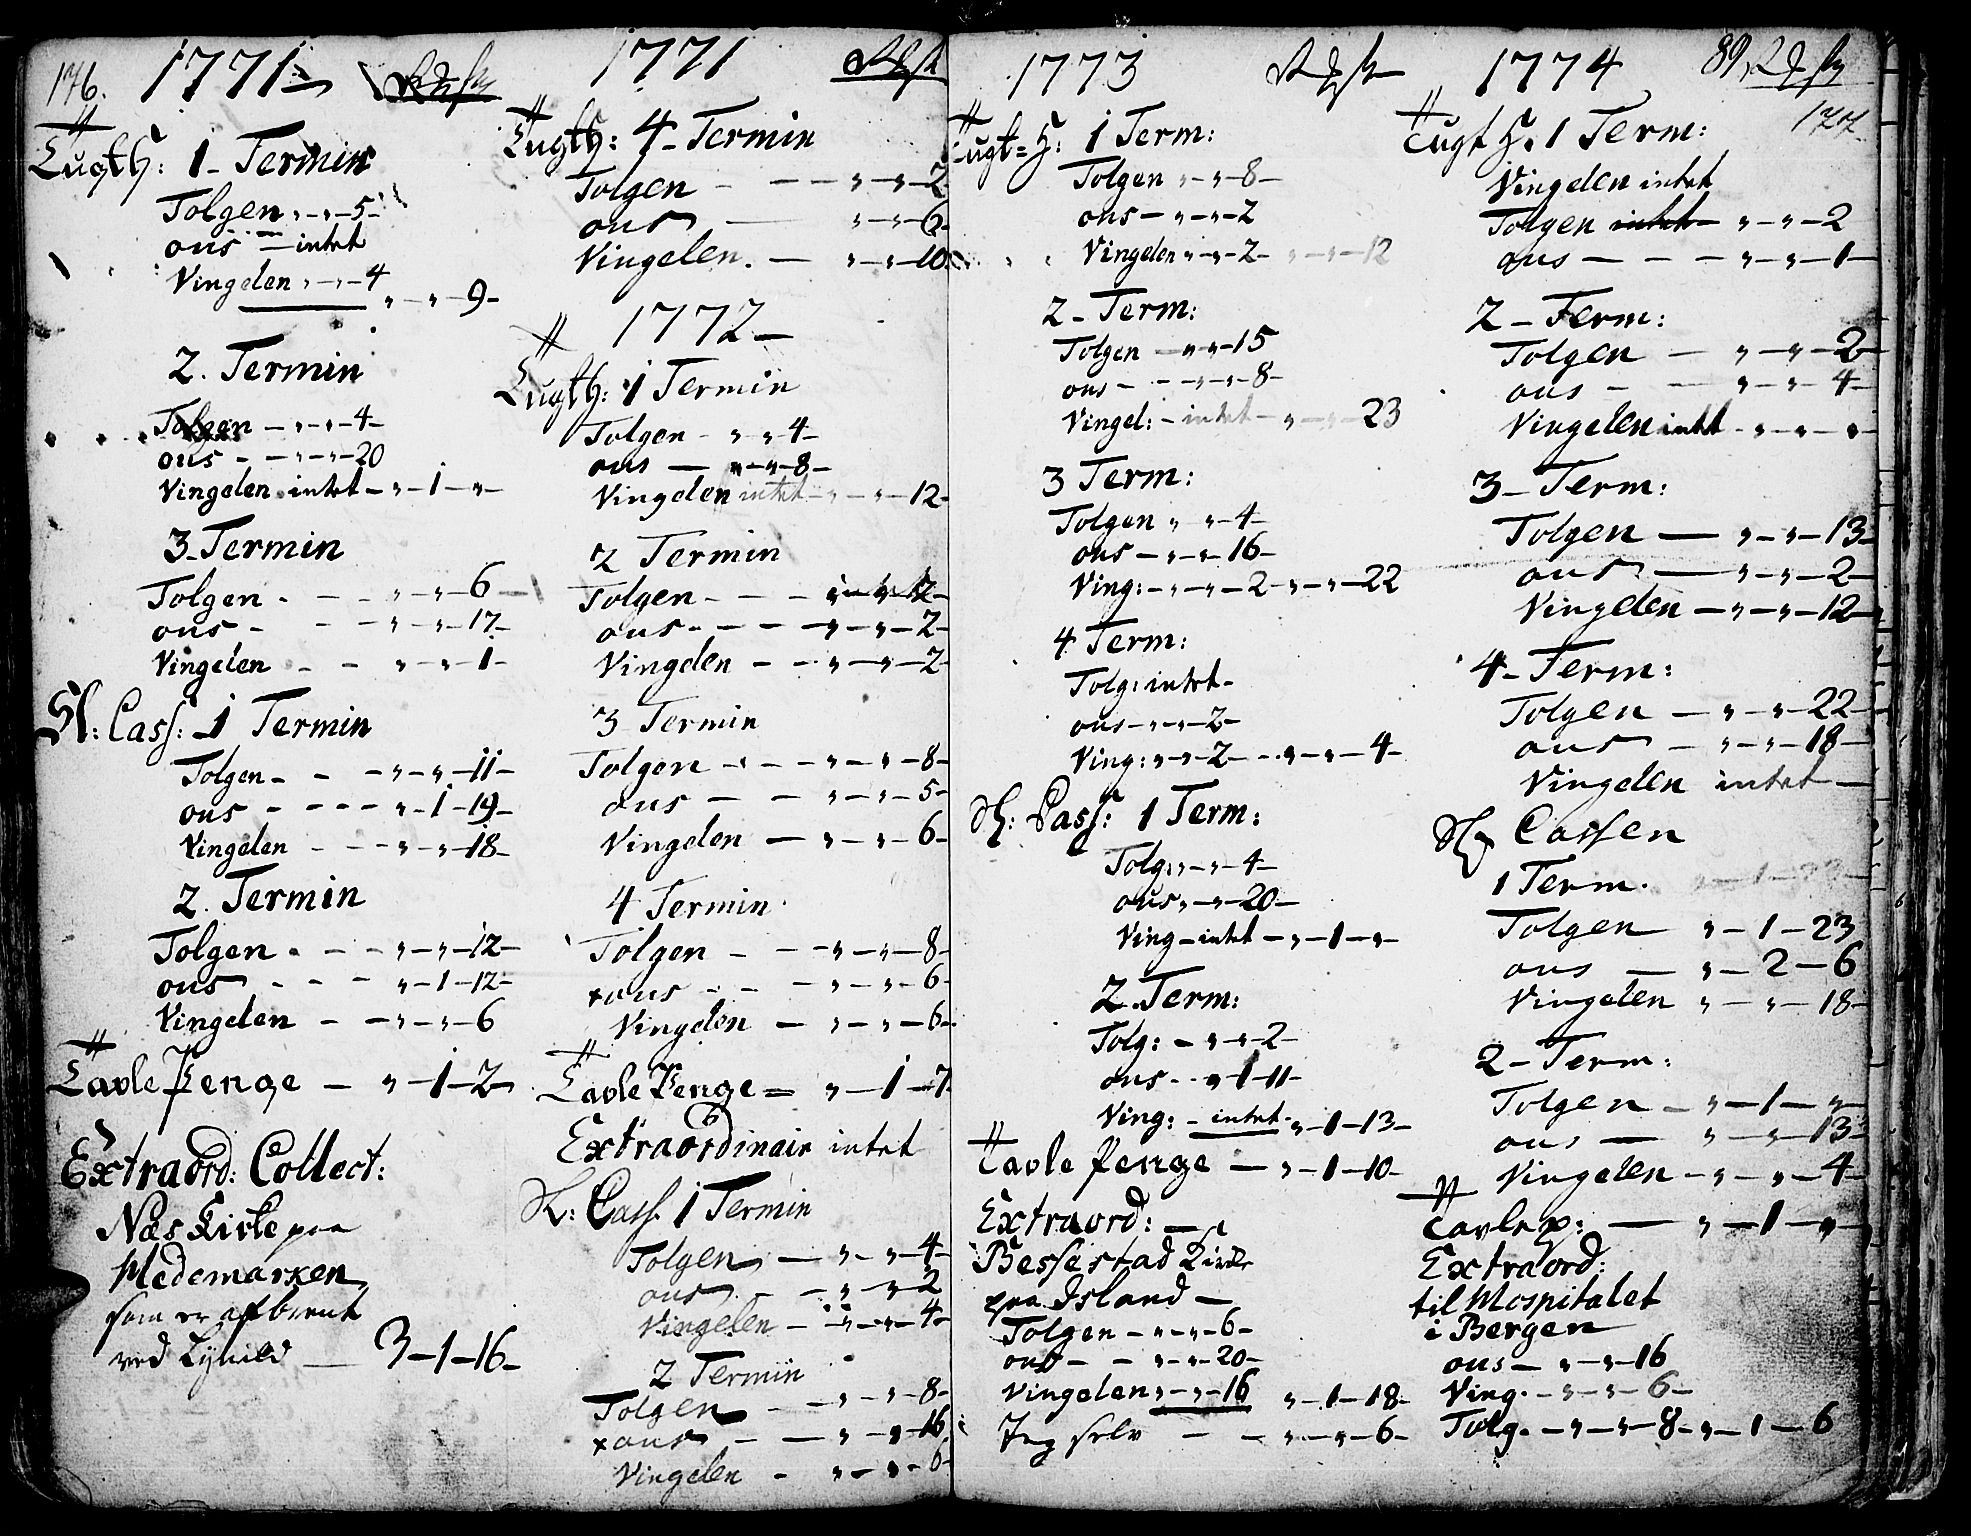 176.
1771
Tugth: 1 - Termin
Tolgen „-„-5-
ous - intet
Vingelen „-„-4
„-„-9-
2. Termin
Tolgen -„-„-4-
ous - -„-„-20
Vingelen intet -„-1-„-
3-Termin
Tolgen - - - „-„-6
ous - - - „-„-17-
Vingelen - - „-„-1-
Sl: Cass: 1 Termin
Tolgen - - -„-„-11-
ous - - - - „-1-19-
Vingelen - - -„-„-18-
2. Termin
Tolgen - - - „-„-12-
ous - - - „-1-12-
Vingelen - -„-„-6
Tavle Penge - „-1-2
Extraord: Collect:
Næs Kirke paa
Hedemarken
som er afbrent
ved Lynild — 3-1-16-
1771
Tugth: 4-Termin
Tolgen - - - „-„-2
ous — „-„-6-
Vingelen. — „-„-10
1772-
Tugth: 1 Termin
Tolgen - „-„-4-
ous — „-„-8-
Vingelen intet -„-„-12-
2 Termin
Tolgen - - -
ous - - - - „-„-2-
Vingelen - - „-„-2-
3 Termin
Tolgen - - - „-„-8-
ous - - „-„-5-
Vingelen — „-„-6-
4 Termin
Tolgen - - -„-„-8-
ous - - - „-„-6-
Vingelen - „-„-6-
Tavle Penge = „-1-7
Extraordinair intet
Sl: Cass. 1 Termin
Tolgen - „-„-4-
ous - „-„-2
Vingelen - „-„-4-
2 Termin
Tolgen - - „-„-8-
ous - - „-„-16
Vingelen - „-„-6-
1773
Tugt=H: 1 Term:
Tolgen „-„-8-
ous - „-„-2
Vingelen „-„-2- „-„-12
2-Term:
Tolgen - „-„-15
ous - -„-„-8-
Vingel: - intet - „-„-23
3 Term:
Tolgen „-„-4-
ous - „-„-16-
Ving: - „-„-2-„-„-22
4 Term:
Tolg: intet-
ous -„-„-2-
Ving: „-„-2- -„-„-4-
Sl: Cass: 1 Term:
Tolg: „-„-4-
ous „-„-20-
Ving - intet -„-1-„-
2. Term:
Tolg: - „-„-2-
ous - - „-1-11-
Ving: - intet- „-1-13-
Tavle Penge — „-1-10-
Extraord: —
Bessestad Kirke
paa Island —
Tolgen - „-„-6-
ous - - „-„-20-
Vingelen „-„-16 „-1-18-
Jeg selv - - „-„-6-
1774
89
177
Tugt H. 1 Term:
Vingelen intet
Tolgen intet „-„-2
ous - - - „-„-1-
2-Term:
Tolgen - „-„-2-
ous - - „-„-4-
Vingelen intet - „-„-„-
3-Term:
Tolgen — „-„-13-
ous — „-„-2-
Vingelen -„-„-12-
4-Term:
Tolgen - „-„-22-
ous - „-„-18-
Vingelen intet -
Cassen
1 Term.
Tolgen „-1-23
ous — „-2-6
Vingelen „-„-18-
2-Term:
Tolgen - „-1-„-
ous — „-„-13-
Vingelen -„-„-4-
Tavle p: — „-1-„-
Extraord:
til Hospitalet
i Bergen
ous - „-„-16
Ving. -„-„-6-
Tolg. -„-„-8-„-1-6